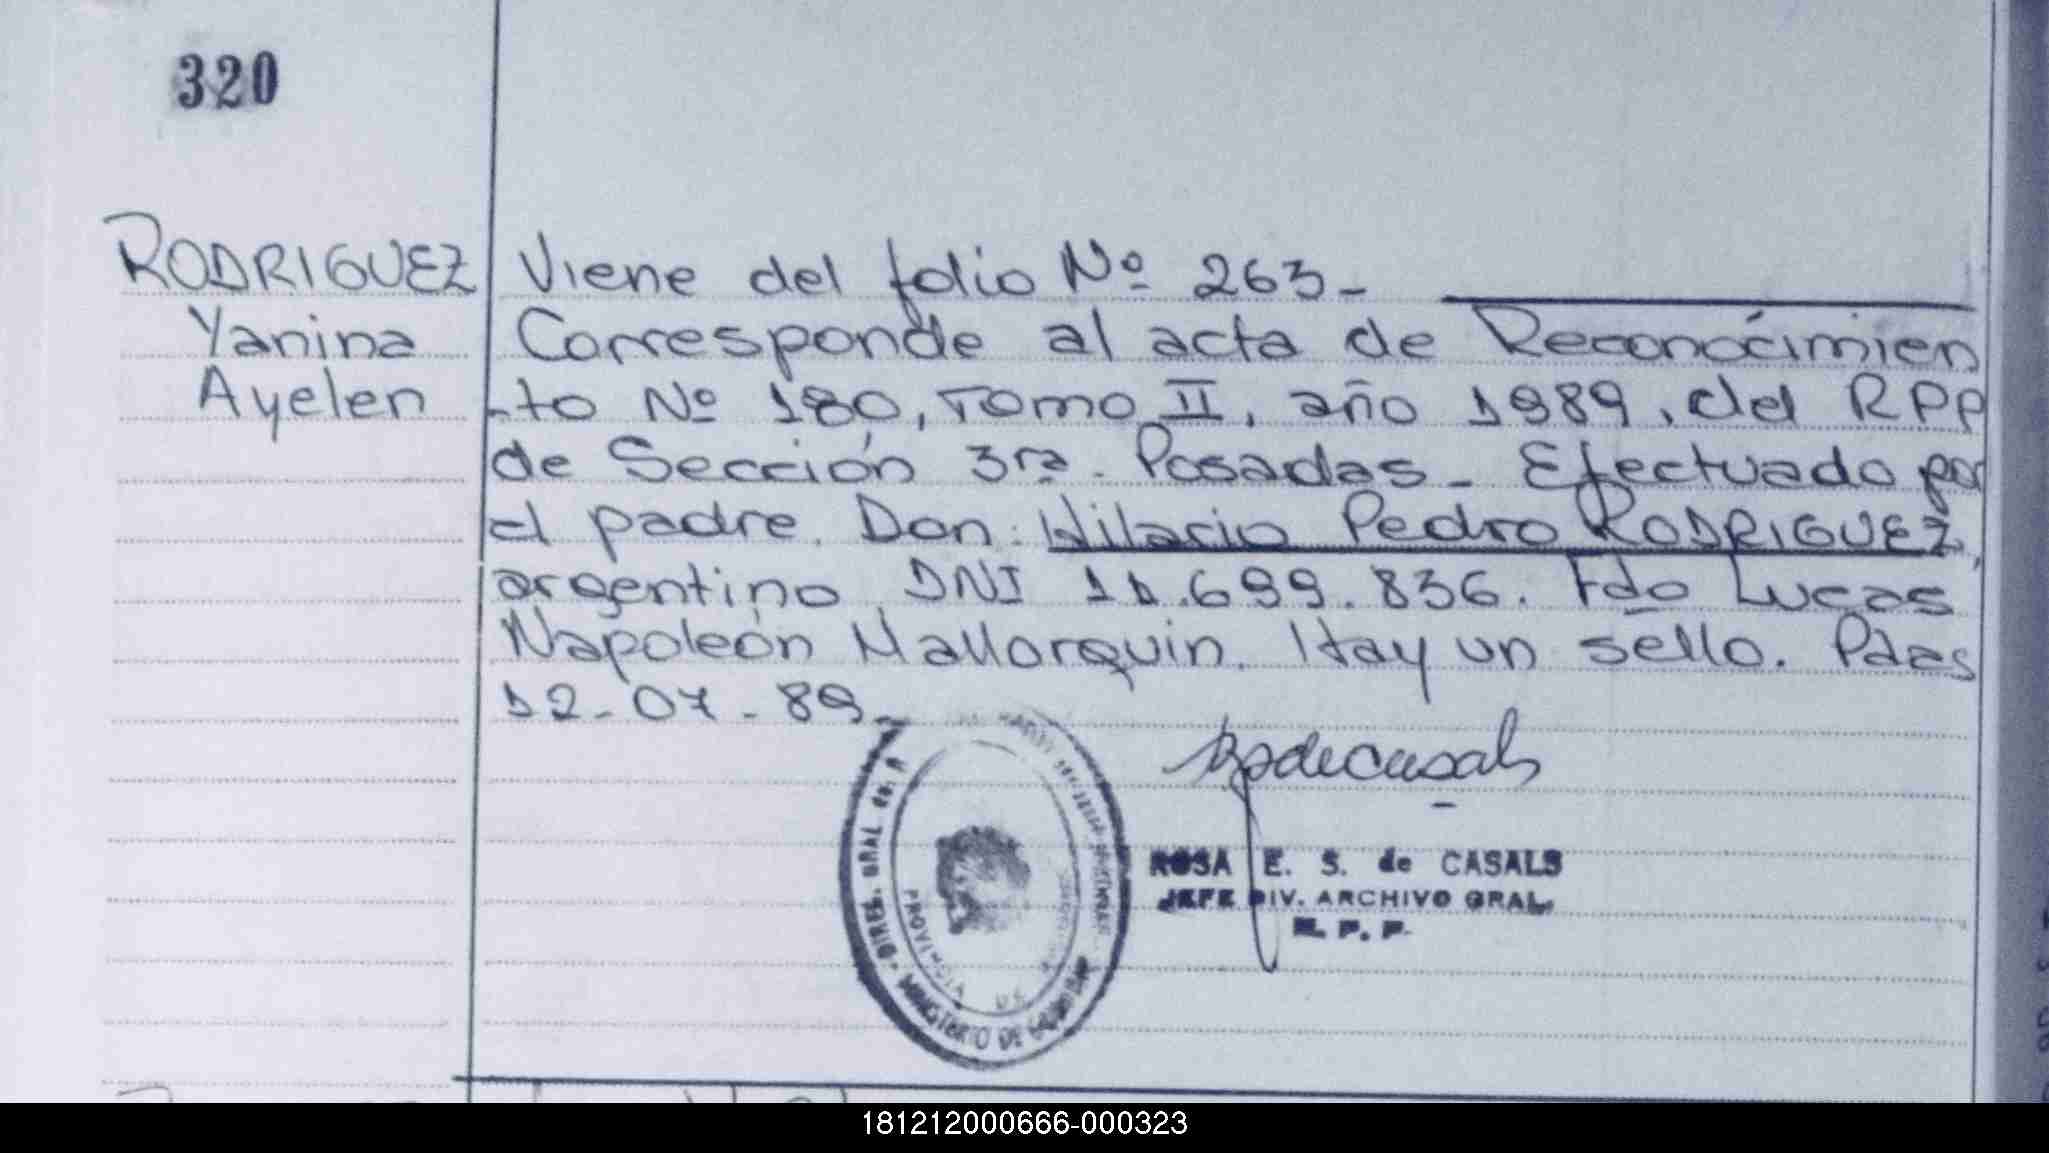 320
RODRIGUEZ
Yanina
Ayelen
Viene del folio Nº 263_
Corresponde al acta de Reconócimien
-to Nº 180, Tomo II, año 1989, del RPP
de Sección 3ra. Posadas_ Efectuado por
el padre. Don: Hilario Pedro RODRIGUEZ,
argentino DNI 11.699.836. Fdo Lucas
Napoleón Mallorquin. Hay un sello. Pdas
12-07-89_
DIREC. GRAL de
PROVINCIA DE
MINISTERIO DE GOBIERNO
ROSA E. S. de CASALS
JEFE DIV. ARCHIVO GRAL.
R. P. P.
181212000666-000323